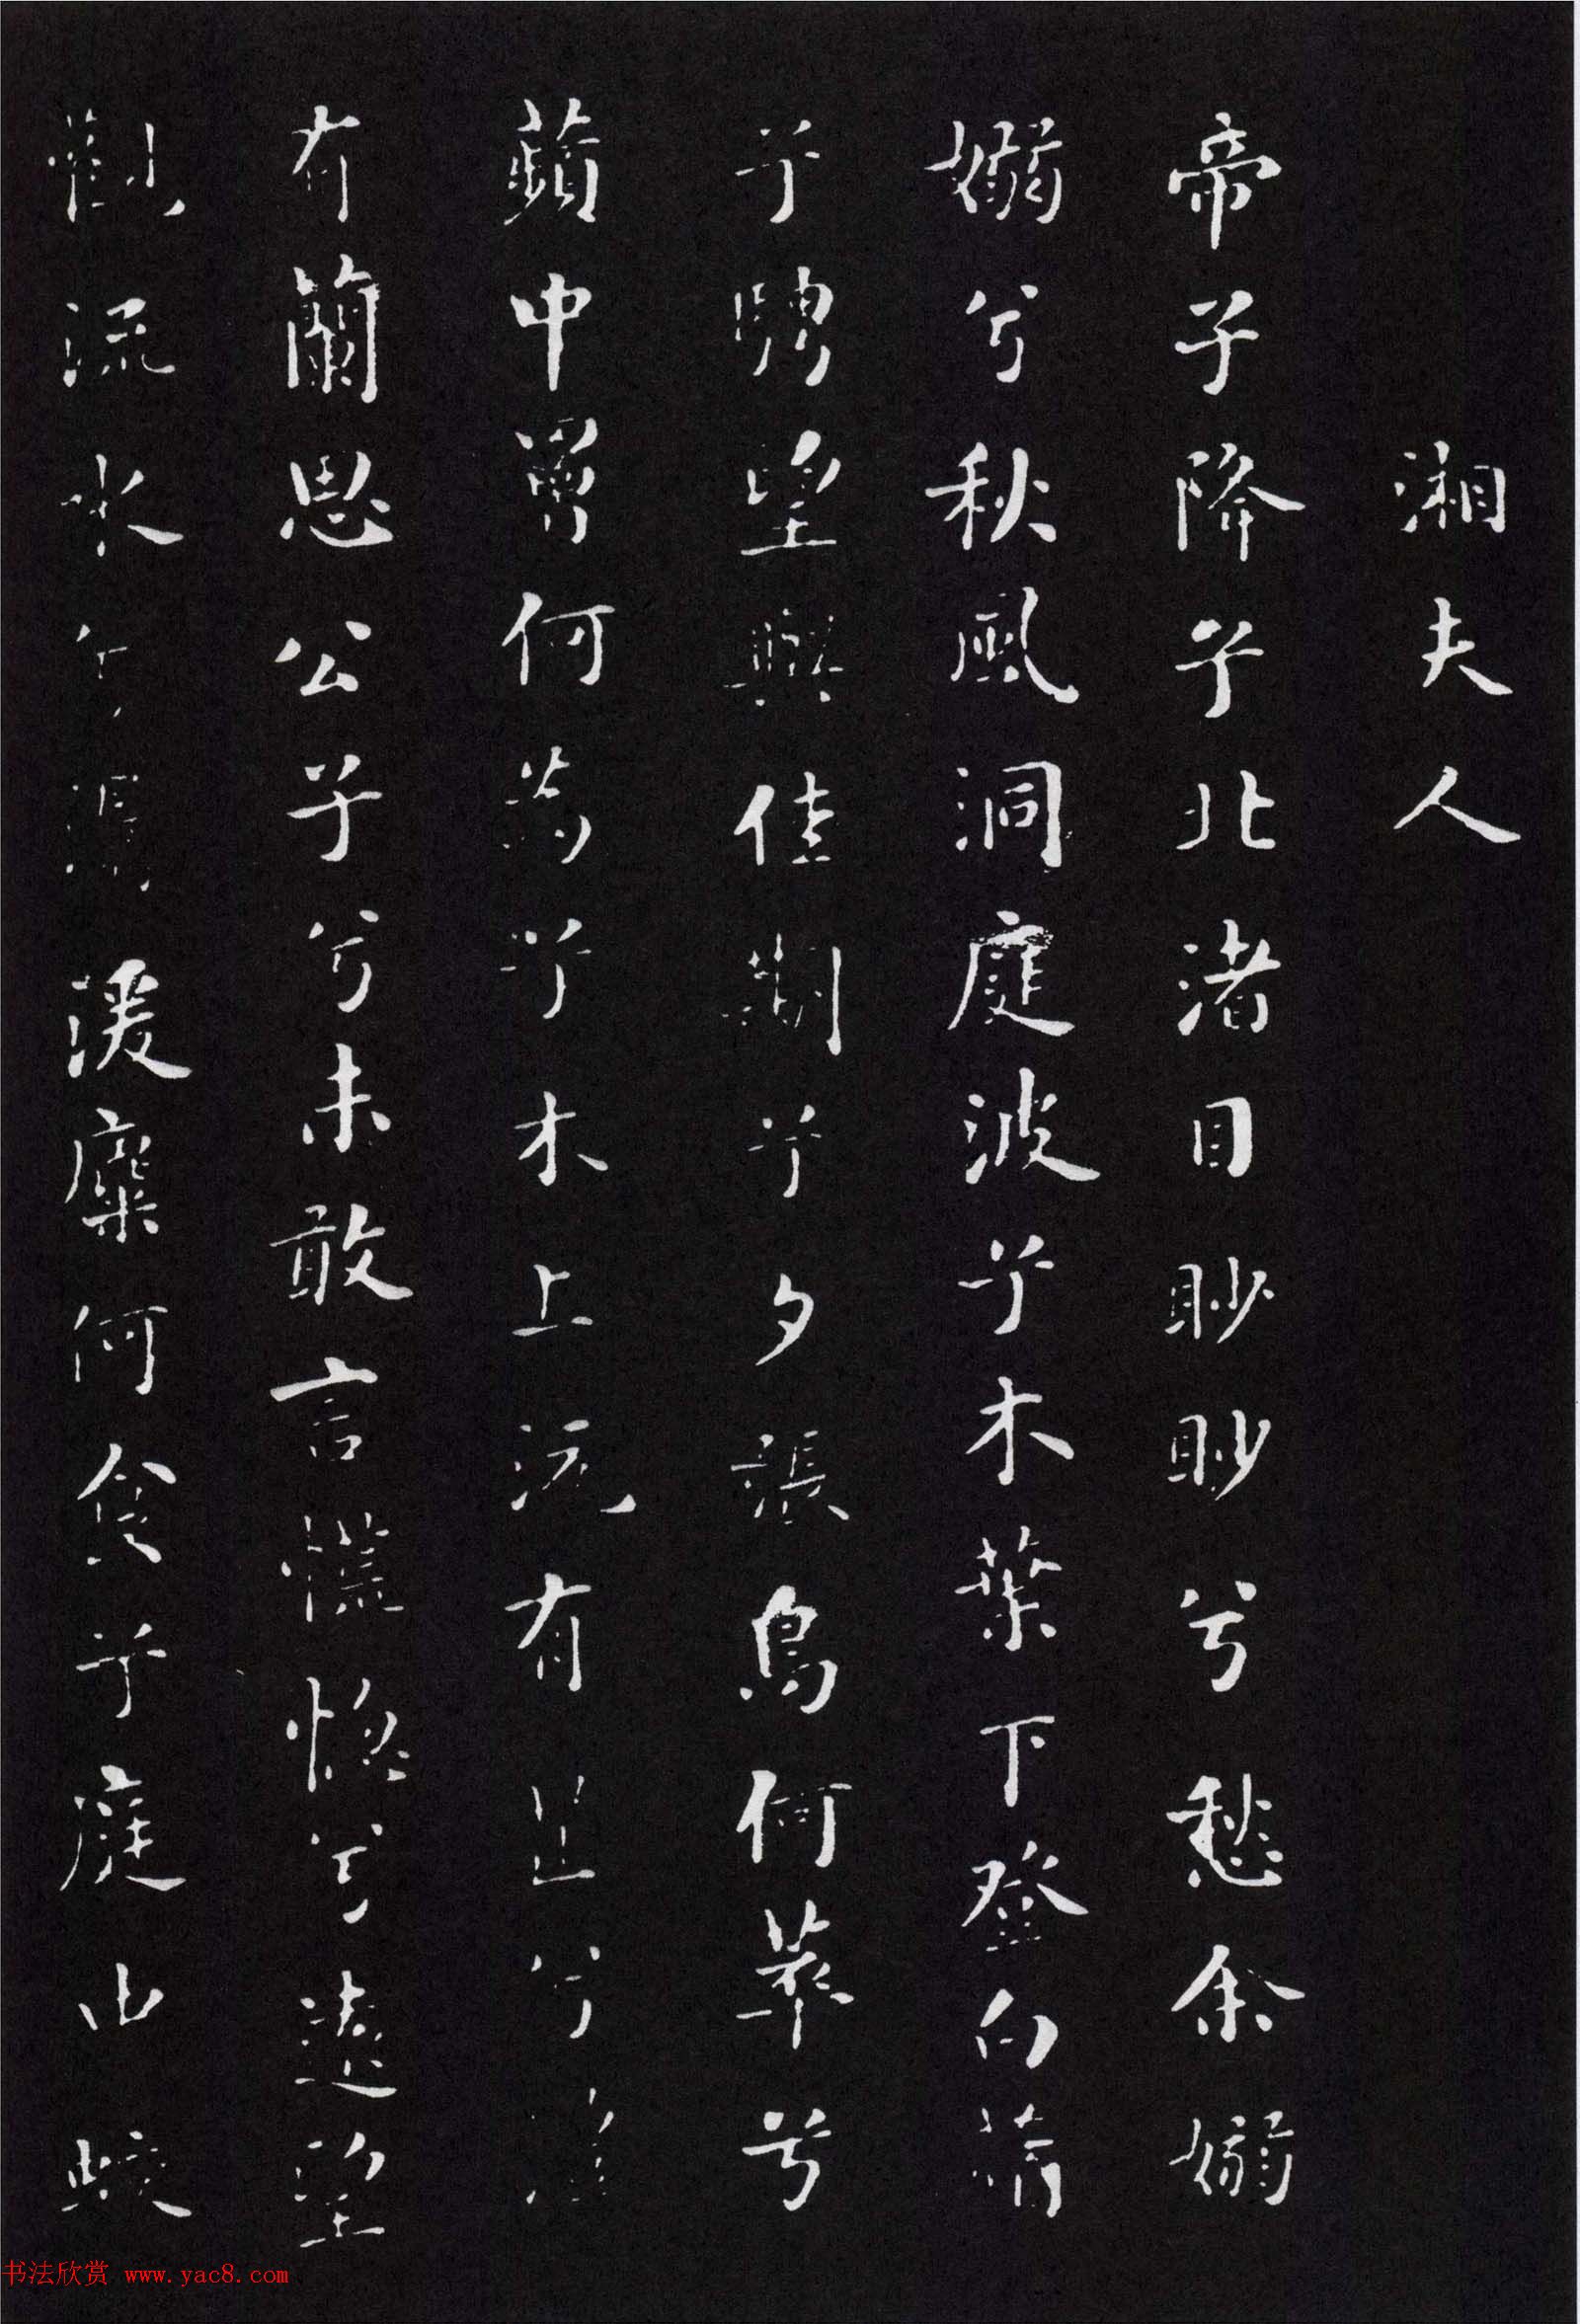 湘夫人
帝子降兮北渚目眇眇兮愁余嫋
嫋兮秋風洞庭波兮木葉下登白薠
兮騁望與佳期兮夕張鳥何萃兮
蘋中罾何為兮木上沅有芷兮澧
有蘭思公子兮未敢言慌惚兮遠望
觀流水兮潺湲麋何食兮庭中蛟
书法欣赏 www.yac8.com